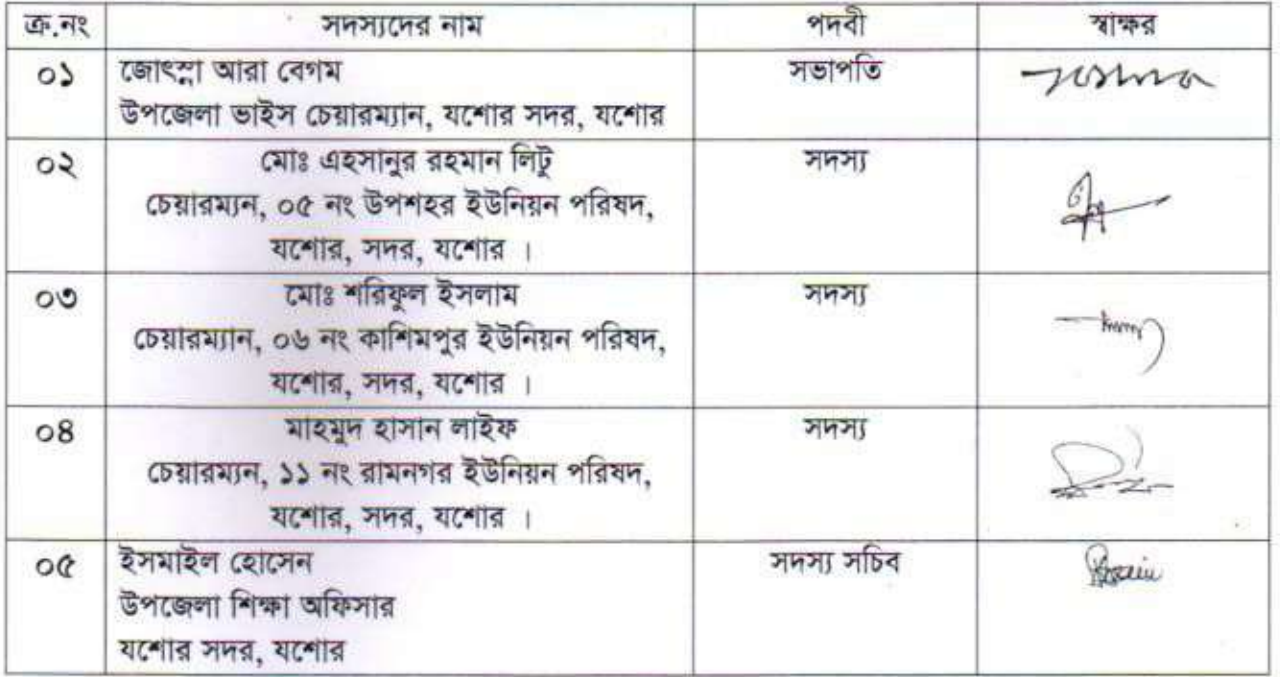 ক্র.নং সদস্যদের নাম পদবী স্বাক্ষর
০১ জোৎস্না আরা বেগম সভাপতি
উপজেলা ভাইস চেয়ারম্যান, যশোর সদর, যশোর
০২ মোঃ এহসানুর রহমান লিটু সদস্য
চেয়ারম্যন, ০৫ নং উপশহর ইউনিয়ন পরিষদ,
যশোর, সদর, যশোর ।
০৩ মোঃ শরিফুল ইসলাম সদস্য
চেয়ারম্যান, ০৬ নং কাশিমপুর ইউনিয়ন পরিষদ,
যশোর, সদর, যশোর ।
০৪ মাহমুদ হাসান লাইফ সদস্য
চেয়ারম্যন, ১১ নং রামনগর ইউনিয়ন পরিষদ,
যশোর, সদর, যশোর ।
০৫ ইসমাইল হোসেন সদস্য সচিব
উপজেলা শিক্ষা অফিসার
যশোর সদর, যশোর